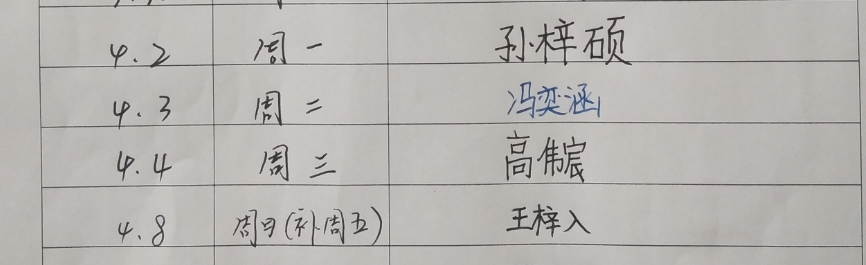 4.2 周一 孙梓硕
4.3 周二 冯奕涵
4.4 周三 高伟宸
4.8 周日(补周五) 王梓入